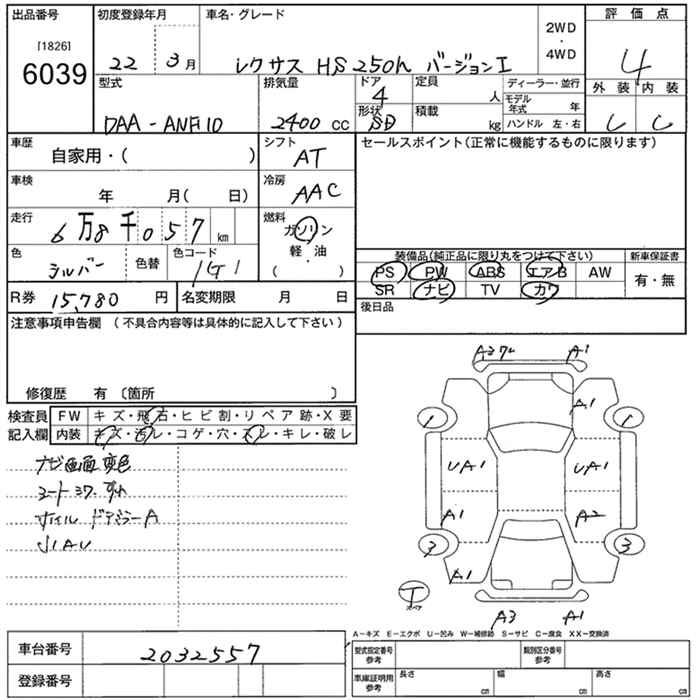 出品番号 初度登録年月 車名・グレード 評価点
[1826] 2WD
6039 22 3月 レクサス HS250h バージョンI ・ 4WD 4
型式 排気量 ドア 4 定員 人 ディーラー・並行 外装 内装
DAA-ANF10 2400 cc 形状 SD 積載 kg モデル年式 年 C C
ハンドル 左・右
車歴 自家用・( ) シフト AT セールスポイント(正常に機能するものに限ります)
車検 年 月( 日) 冷房 AAC
走行 6万8千057 km 燃料 ガソリン
色 シルバー 色替 色コード 1G1 軽・油 ( )
装備品(純正品に限り丸をつけて下さい) 新車保証書
PS PW ABS エアB AW 有・無
SR ナビ TV カワ
R券 15,780 円 名変期限 月 日
後日品
注意事項申告欄 (不具合内容等は具体的に記入して下さい)
修復歴 有 〔箇所 〕
検査員 FW キズ・飛石・ヒビ割・リペア跡・X要
記入欄 内装 キズ・汚レ・コゲ・穴・スレ・キレ・破レ
ナビ画面変色
シートシワ、すれ
ホイル ドアミラーA
小AU
A1
A1
1 1
UA1 UA1
A1 A2
3 3
A1
T
A3 A1
A−キズ E−エクボ U−凹み W−補修跡 S−サビ C−腐食 XX−交換済
車台番号 2032557
登録番号
型式指定番号 参考 類別区分番号 参考
車庫証明用 参考 長さ cm 幅 cm 高さ cm